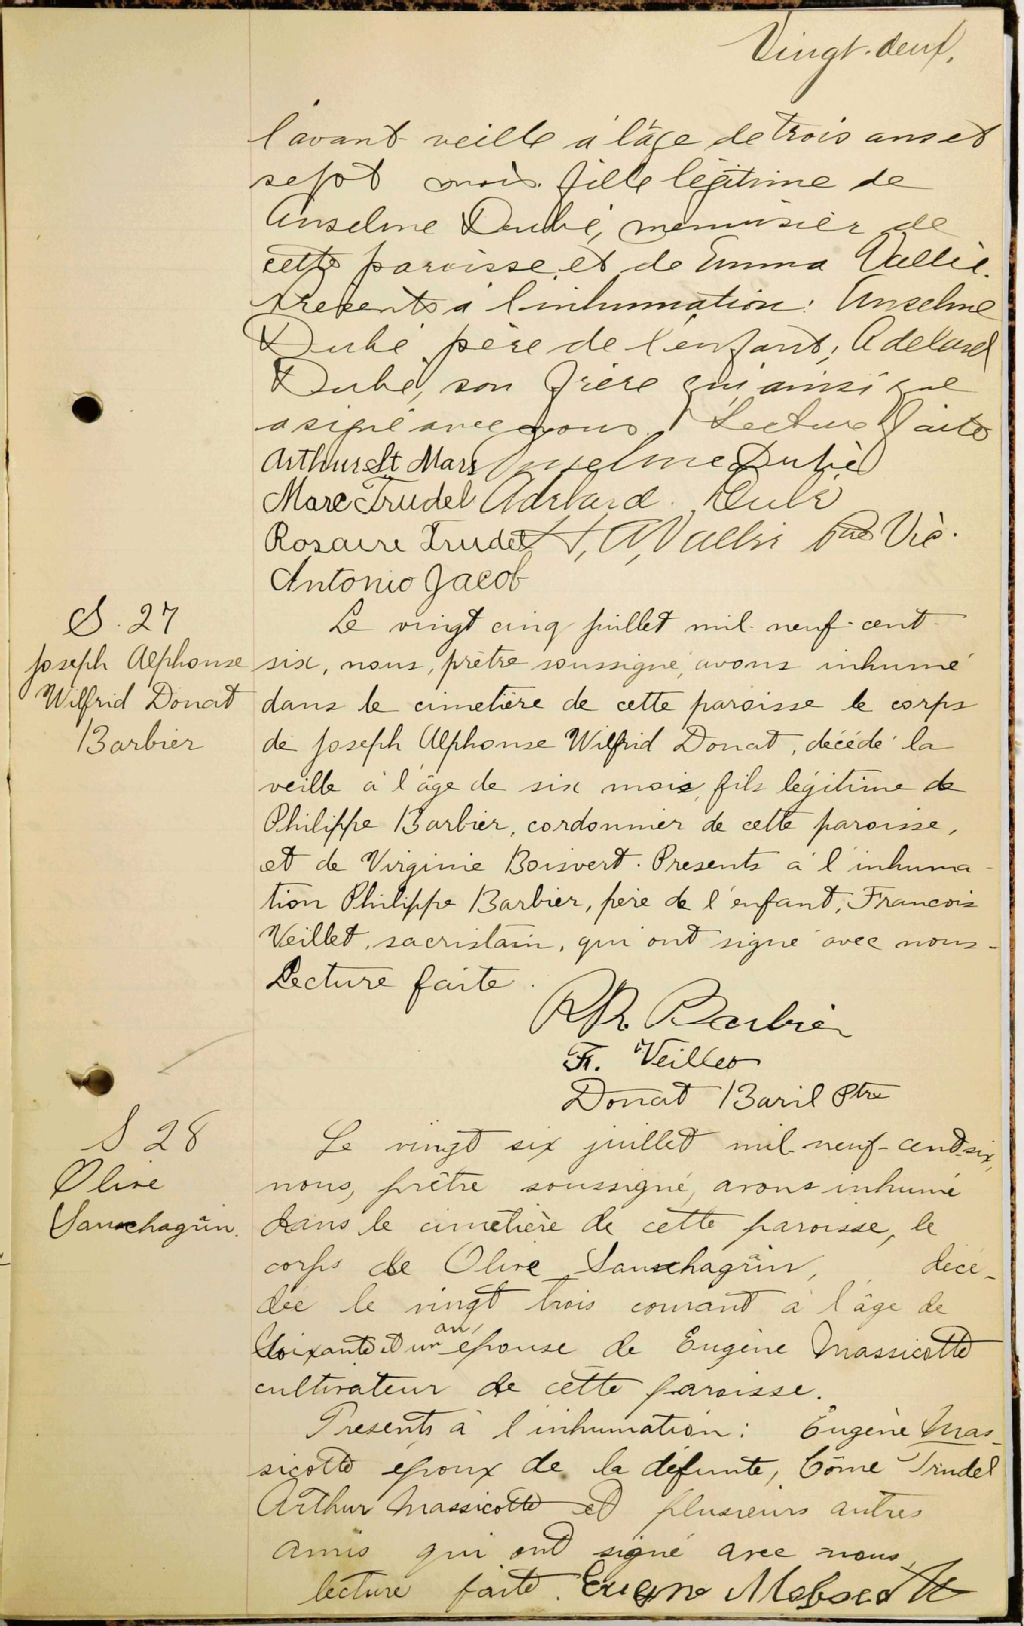 Vingt-deux.
l'avant veille à l'âge de trois ans et
sept mois. fille légitime de
Anselme Dubé, menuisier de
cette paroisse et de Emma Vallée.
Présents à l'inhumation: Anselme
Dubé père de l'enfant; Adelard
Dubé, son frère qui ainsi que
a signé avec nous. Lecture faite
Arthur St Mars Anselme Dubé
Marc Trudel Adelard Dubé
Rosaire Trudel H, A, Vallée Vic.
Antonio Jacob
S. 27
Joseph Alphonse
Wilfrid Donat
Barbier
Le vingt cinq juillet mil neuf-cent
six, nous, prêtre soussigné, avons inhumé
dans le cimetière de cette paroisse le corps
de Joseph Alphonse Wilfrid Donat, décédé la
veille à l'âge de six mois, fils légitime de
Philippe Barbier, cordonnier de cette paroisse,
et de Virginie Boisvert. Présents à l'inhuma-
tion Philippe Barbier, père de l'enfant, Francois
Veillet, sacristain, qui ont signé avec nous-
Lecture faite.
Ph. Barbier
F. Veillet
Donat Baril Ptre
S 28
Olive
Sanschagrin.
Le vingt six juillet mil neuf-cent six,
nous, prêtre soussigné, avons inhumé
dans le cimetière de cette paroisse, le
corps de Olive Sanschagrin, décé-
dée le vingt trois courant à l'âge de
soixante et un an, épouse de Eugène Massicotte
cultivateur de cette paroisse.
Présents à l'inhumation: Eugène Mas-
sicotte époux de la défunte, Côme Trudel
Arthur Massicotte et plusieurs autres
amis qui ont signé avec nous,
lecture faite. Eugene Massicotte